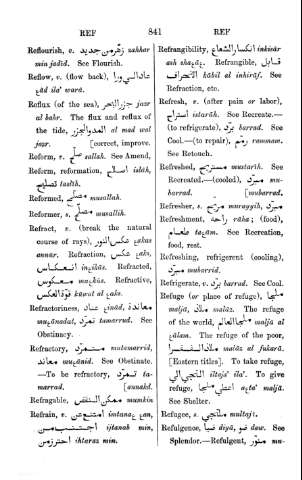 REF 841 REF
Reflourish, v. زهّر من جديد zahhar
min jadíd. See Flourish.
Reflow, v. (flow back), عاد الى ورا
ɛád ila' ward.
Reflux (of the sea), جزر البحر jazr
al bahr. The flux and reflux of
the tide, المد والجزر al mad wal
jazr. [correct, improve.
Reform, v. صلّح sallah. See Amend,
Reform, reformation, اصلاح isláh,
تصليح taslíh.
Reformed, مصلّح musallah.
Reformer, s. مصلّح musallih.
Refract, v. (break the natural
course of rays), عكس النور ɛakas
annur. Refraction, عكس ɛaks,
انعكاس inɛikás. Refracted,
معكوس maɛkús. Refractive,
قوة العكس kúwat al ɛaks.
Refractoriness, عناد ɛinád, معاندة
muɛánadat, تمرّد tamarrud. See
Obstinacy.
Refractory, متمرّد mutamarrid,
معاند muɛánid. See Obstinate.
—To be refractory, تمرّد ta-
marrad. [ɛunakd.
Refragable, ممكن النقض mumkin
Refrain, v. امتنع عن imtanaɛ ɛan,
اجتنب من ijtanab min,
احترز من ihtaraz min.
Refrangibility, انكسار الشعاع inkisár
ash shaɛáɛ. Refrangible, قابل
الانحراف kábil al inhiráf. See
Refraction, etc.
Refresh, v. (after pain or labor),
استراح istaráh. See Recreate.—
(to refrigerate), برّد barrad. See
Cool.—(to repair), رمّم rammam.
See Retouch.
Refreshed, مستريح mustaríh. See
Recreated.—(cooled), مبرّد mu-
barrad. [mubarrad.
Refresher, s. مريّح murayyih, مبرّد
Refreshment, راحة ráha; (food),
طعام taɛám. See Recreation,
food, rest.
Refreshing, refrigerent (cooling),
مبرّد mubarrid.
Refrigerate, v. برّد barrad. See Cool.
Refuge (or place of refuge), ملجا
maljá, ملاذ maláz. The refuge
of the world, ملجا العالم maljá al
ɛálam. The refuge of the poor,
ملاذ الفقرا maláz al fukará.
[Eastern titles]. To take refuge,
التجى الى iltaja' ila'. To give
refuge, اعطى ملجا aɛta' maljá.
See Shelter.
Refugee, s. ملتجي multají.
Refulgence, ضيا diyá, ضو daw. See
Splendor.—Refulgent, منوّر mu-